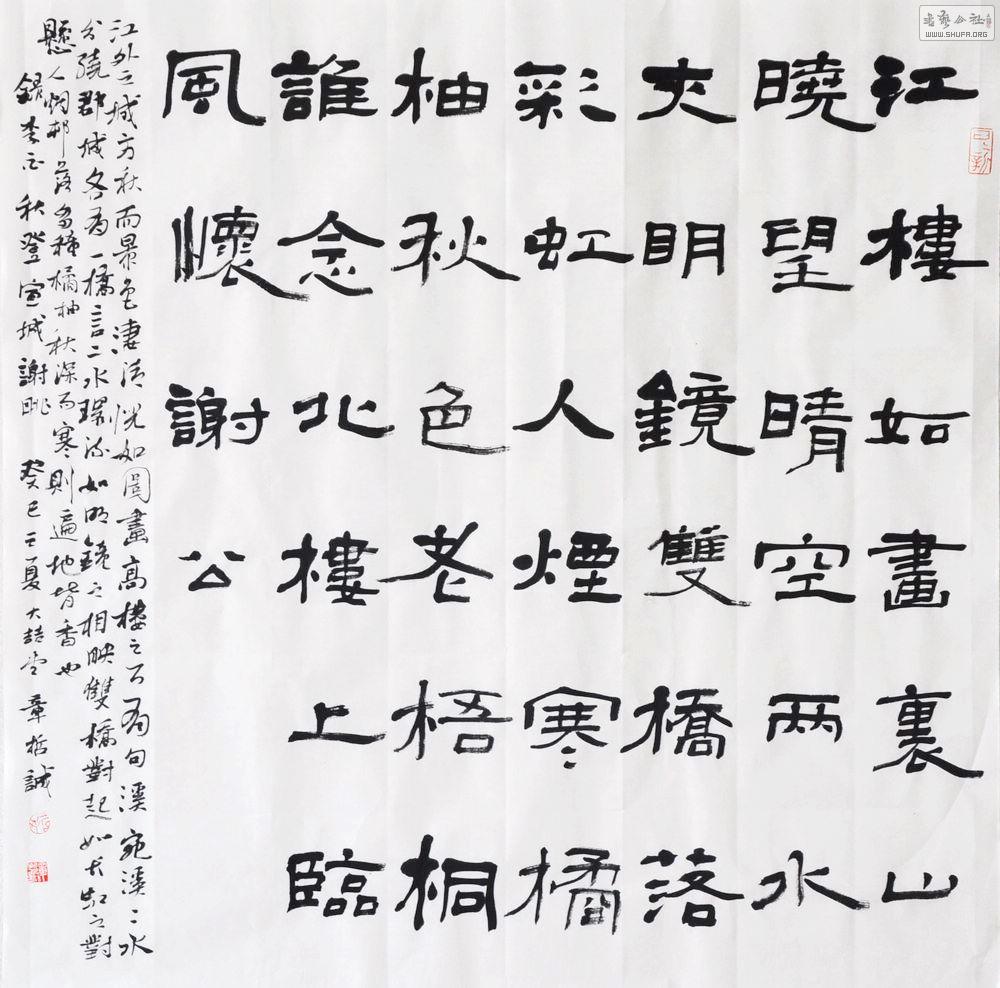 江樓如畫裏山
曉望晴空兩水
夾明鏡雙橋落
彩虹人煙寒橘
柚秋色老梧桐
誰念北樓上臨
風懷謝公
江外之城方秋而景色凄清恍如圖畫高樓之下為句溪宛溪二水
分繞郡城各為一橋言二水環流如明鏡之相映雙橋對起如长虹之對
懸人烟邨落多種橘柚秋深而寒則遍地皆香也
錄李白秋登宣城謝眺 癸巳之夏大喆堂章哲誠
書藝公社
WWW.SHUFA.ORG